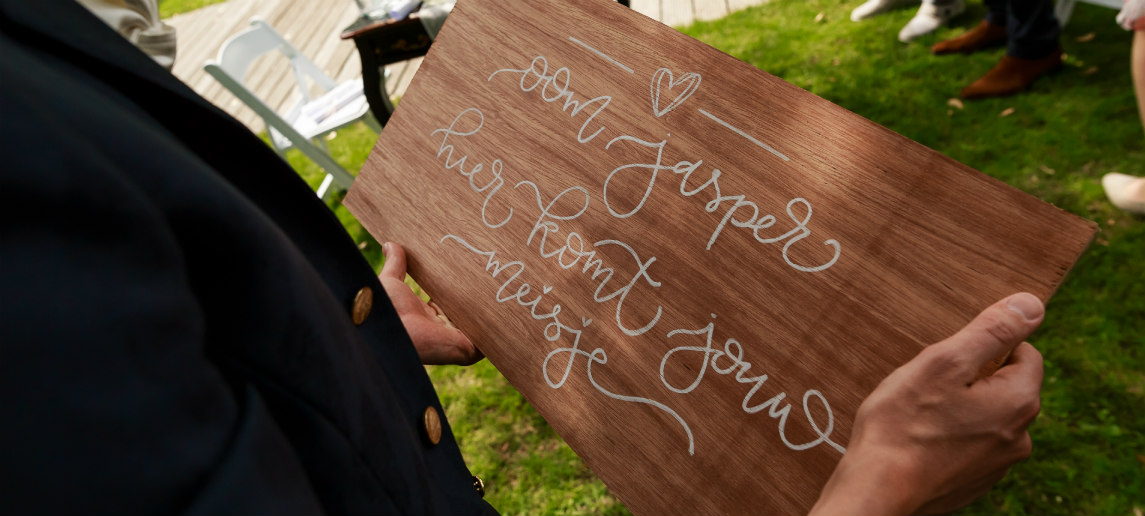 oom jasper
hier komt jouw
meisje